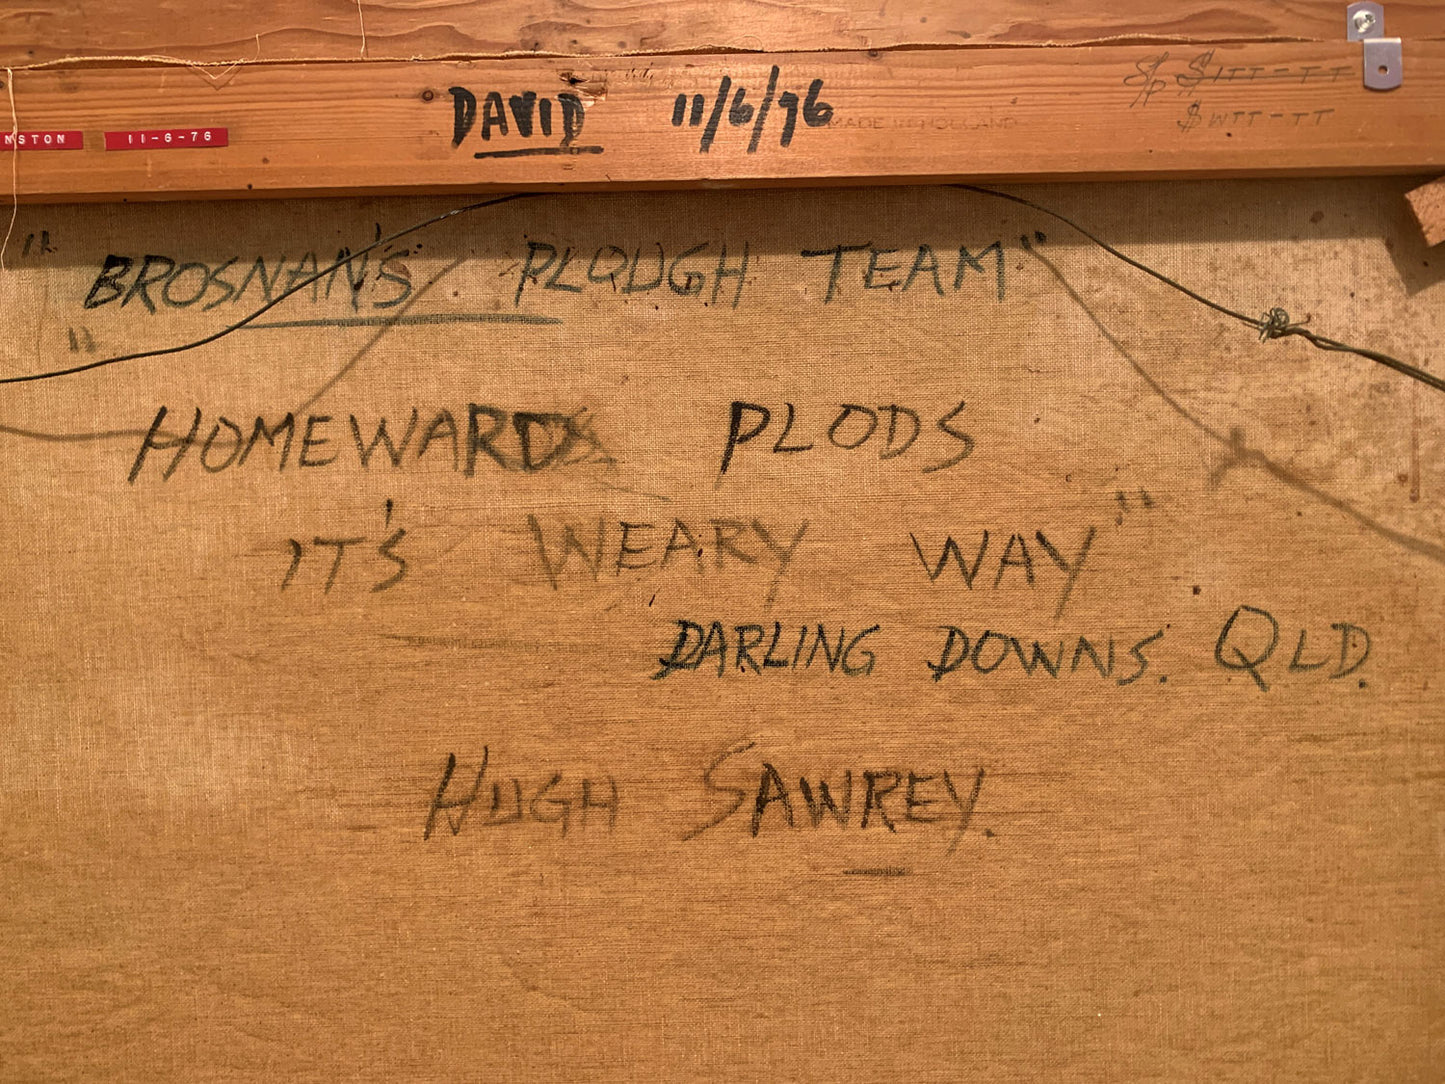 DAVID 11/6/76
NSTON 11-6-76
MADE IN HOLLAND
"BROSNAN'S PLOUGH TEAM"
"
HOMEWARDS PLODS
IT'S WEARY WAY"
DARLING DOWNS. QLD.
HUGH SAWREY.